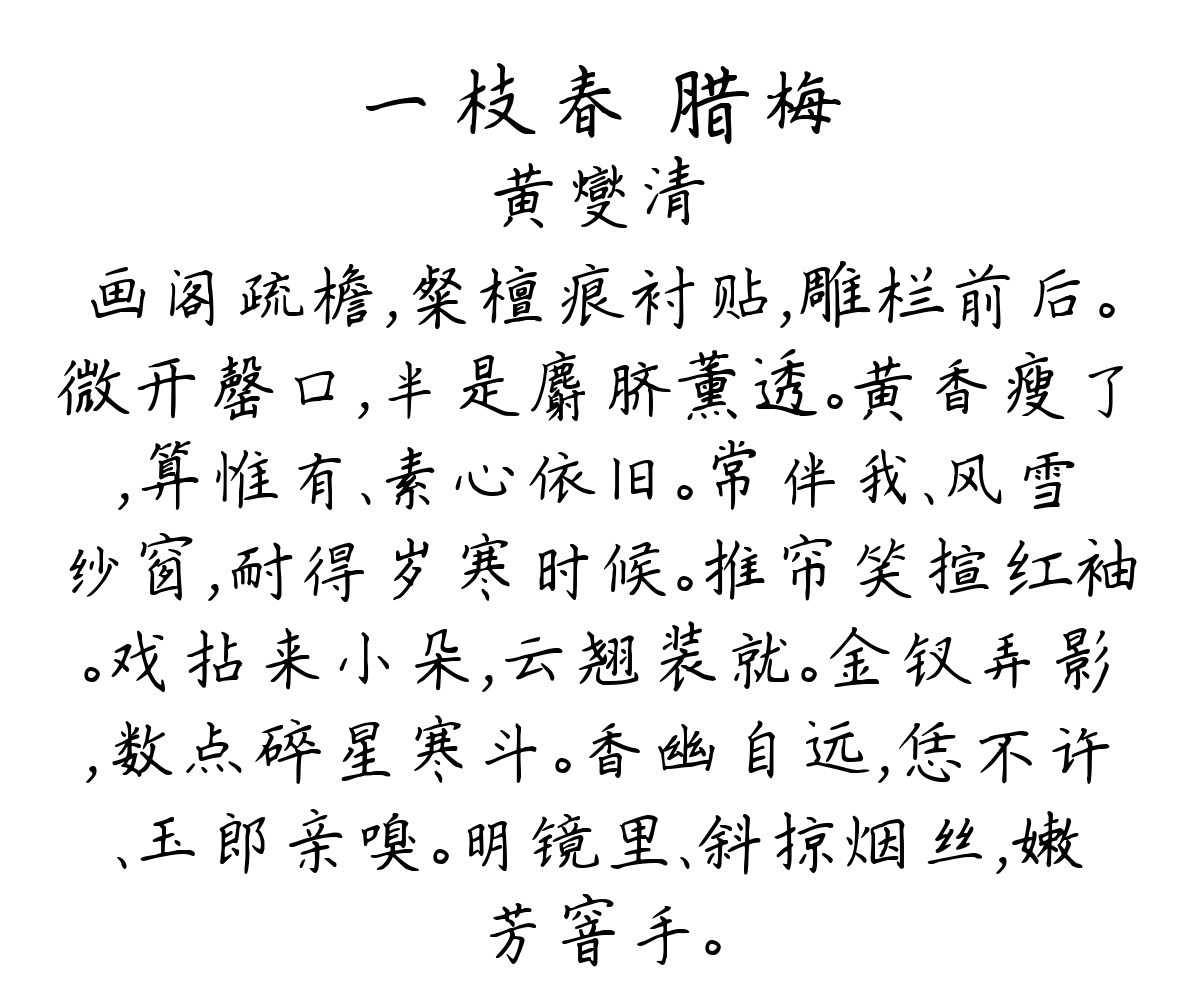 一枝春 腊梅
黄燮清
画阁疏檐,粲檀痕衬贴,雕栏前后。
微开罄口,半是麝脐薰透。黄香瘦了
,算惟有、素心依旧。常伴我、风雪
纱窗,耐得岁寒时候。推帘笑揎红袖
。戏拈来小朵,云翘装就。金钗弄影
,数点碎星寒斗。香幽自远,恁不许
、玉郎亲嗅。明镜里、斜掠烟丝,嫩
芳窨手。